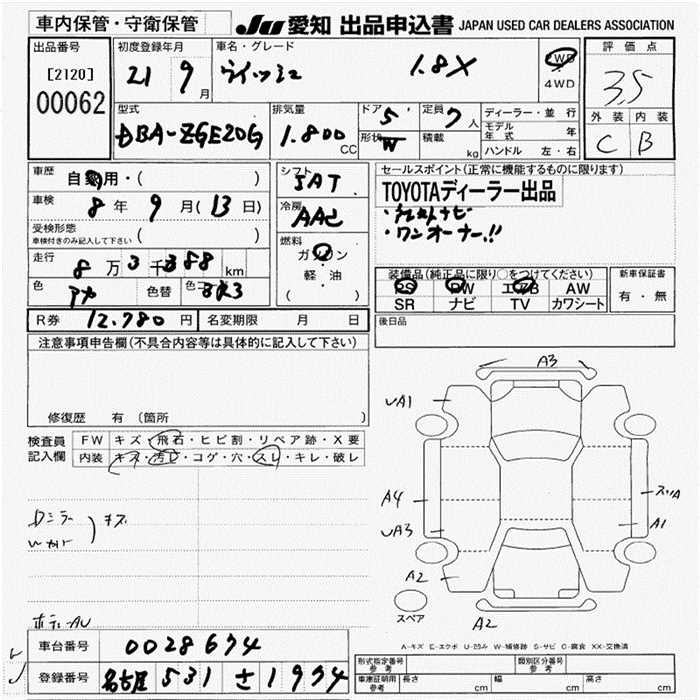 車内保管・守衛保管 JU 愛知 出品申込書 JAPAN USED CAR DEALERS ASSOCIATION
出品番号 [2120] 00062
初度登録年月 21 9月
車名・グレード ウイッシュ 1.8X
2WD 4WD
評価点 3.5
外装 内装 C B
型式 DBA-ZGE20G
排気量 1.800 CC
ドア 5 形状 W
定員 7人 積載 kg
ディーラー・並行
モデル年式 年
ハンドル 左・右
車歴 自家用・( )
車検 8年 9月(13日)
受検形態 車検付きのみ記入して下さい ( )
走行 8万3千388km
色 色替 色コ 3R3
シフト 5AT
冷房 AAC
燃料 ガソリン 軽・油 ( )
セールスポイント(正常に機能するものに限ります)
TOYOTAディーラー出品
・ワンオーナー!!
装備品(純正品に限り○をつけてください)
PS PW エアB AW
SR ナビ TV カワシート
新車保証書 有・無
R券 12.780円 名変期限 月 日
後日品
注意事項申告欄(不具合内容等は具体的に記入して下さい)
修復歴 有(箇所
検査員記入欄
FW キズ・飛石・ヒビ割・リペア跡・X要
内装 キズ・汚レ・コゲ・穴・スレ・キレ・破レ
キズ
A3
UA1
A4
UA3
A2
スリA
A1
スペア
A2
A-キズ E-エクボ U-凹み W-補修跡 S-サビ C-腐食 XX-交換済
車台番号 0028674
登録番号 名古屋 531 さ 1974
形式指定番号 参考 類別区分番号 参考
車庫証明用 参考 長さ cm 幅 cm 高さ cm